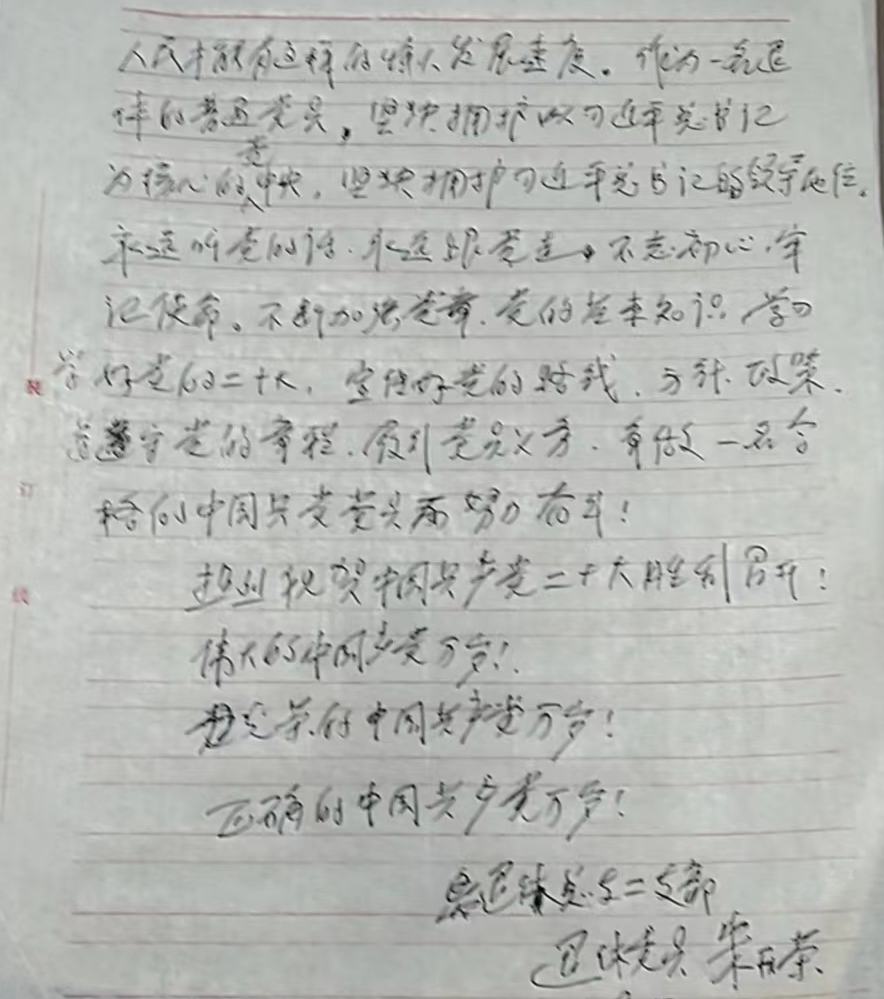 人民才能有这样的惊人发展速度。作为一名退
休的普通党员，坚决拥护以习近平总书记
为核心的党中央，坚决拥护习近平总书记的领导地位。
永远听党的话、永远跟党走，不忘初心、牢
记使命。不断加强党章、党的基本知识学习
学好党的二十大，宣传好党的路线、方针、政策、
遵守党的章程、履行党员义务、争做一名合
格的中国共党党员而努力奋斗！
热烈祝贺中国共产党二十大胜利召开！
伟大的中国产党万岁！
光荣的中国共产党万岁！
正确的中国共产党万岁！
退休总支二支部
退休党员
装
订
线